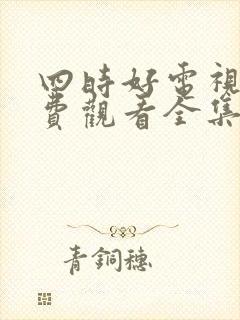 四時好電視
費觀看全集
青銅穗